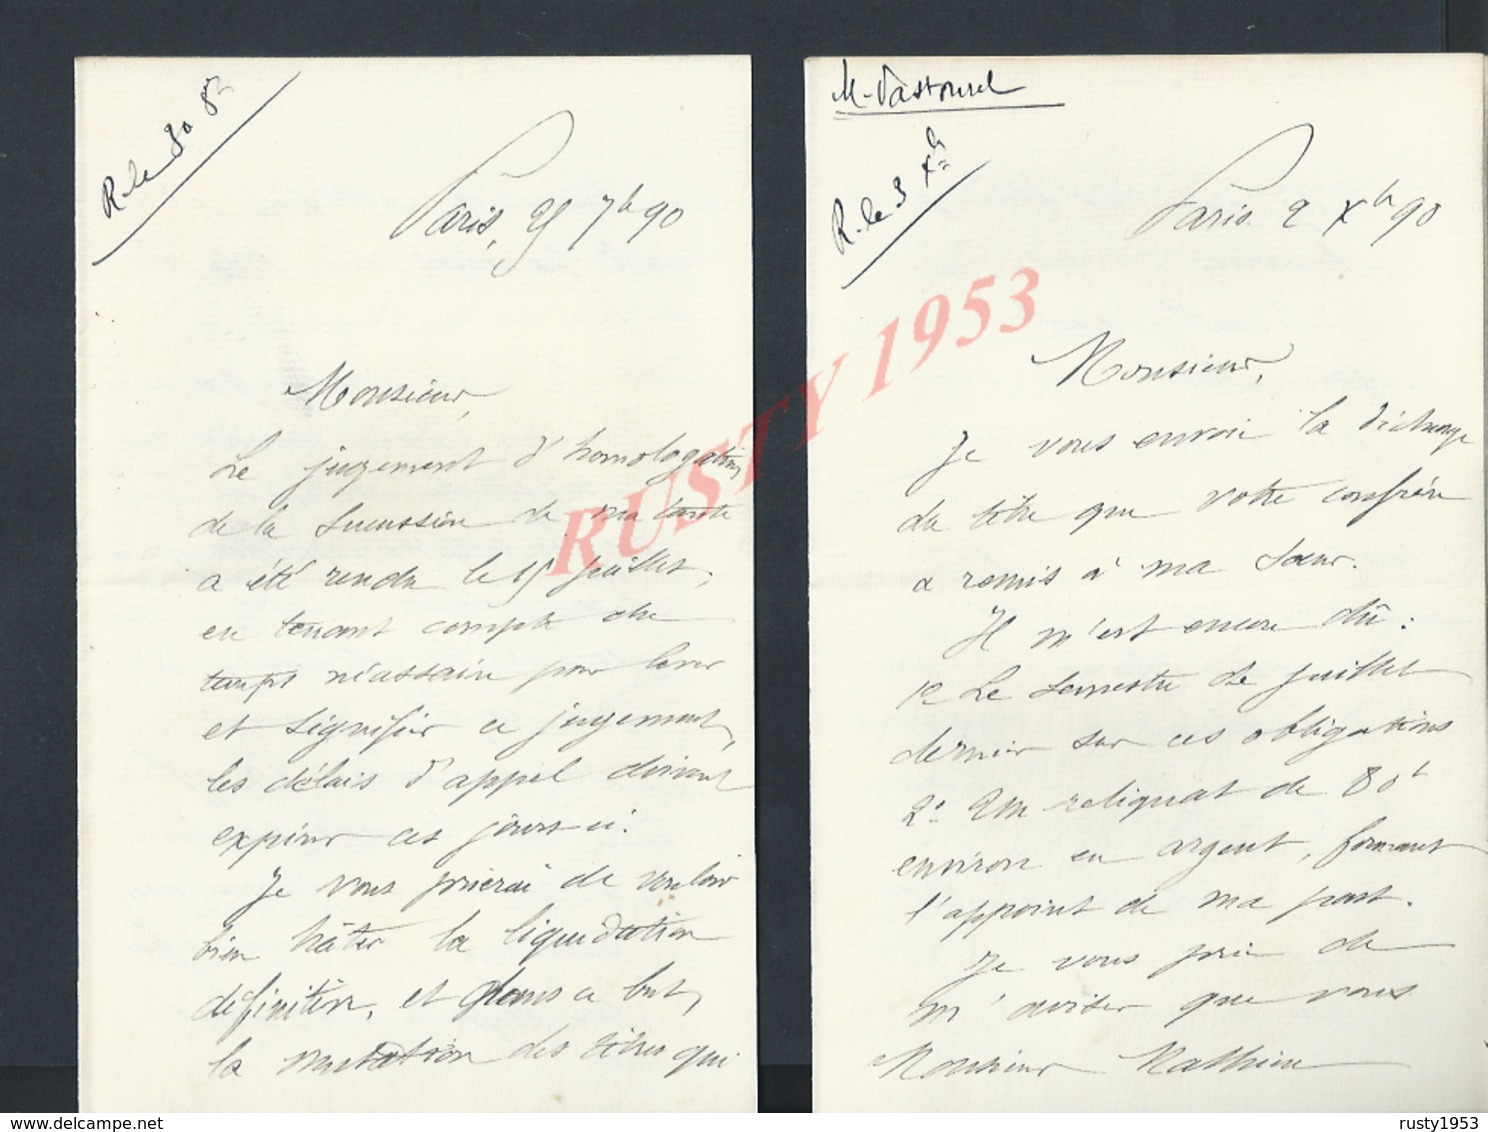 R. le 30 8bre
Paris, 25 7bre 90
Monsieur,
Le jugement d'homologation
de la succession de ma tante
a été rendu le 15 juillet,
en tenant compte du
temps nécessaire pour lever
et signifier ce jugement,
les délais d'appel doivent
expirer ces jours-ci.
Je vous prierai de vouloir
bien hâter la liquidation
définitive, et dans ce but,
la mutation des titres qui
M. Pastourel
R. le 3 Xbre
Paris. 2 Xbre 90
Monsieur,
Je vous envoie la décharge
du titre que votre confrère
a remis à ma sœur.
Il m'est encore dû :
1o Le semestre de juillet
dernier sur ces obligations
2o Un reliquat de 80f
environ en argent, formant
l'appoint de ma part.
Je vous prie de
m'aviser que vous
Monsieur Mathieu
RUSTY 1953
delcampe.net
rusty1953